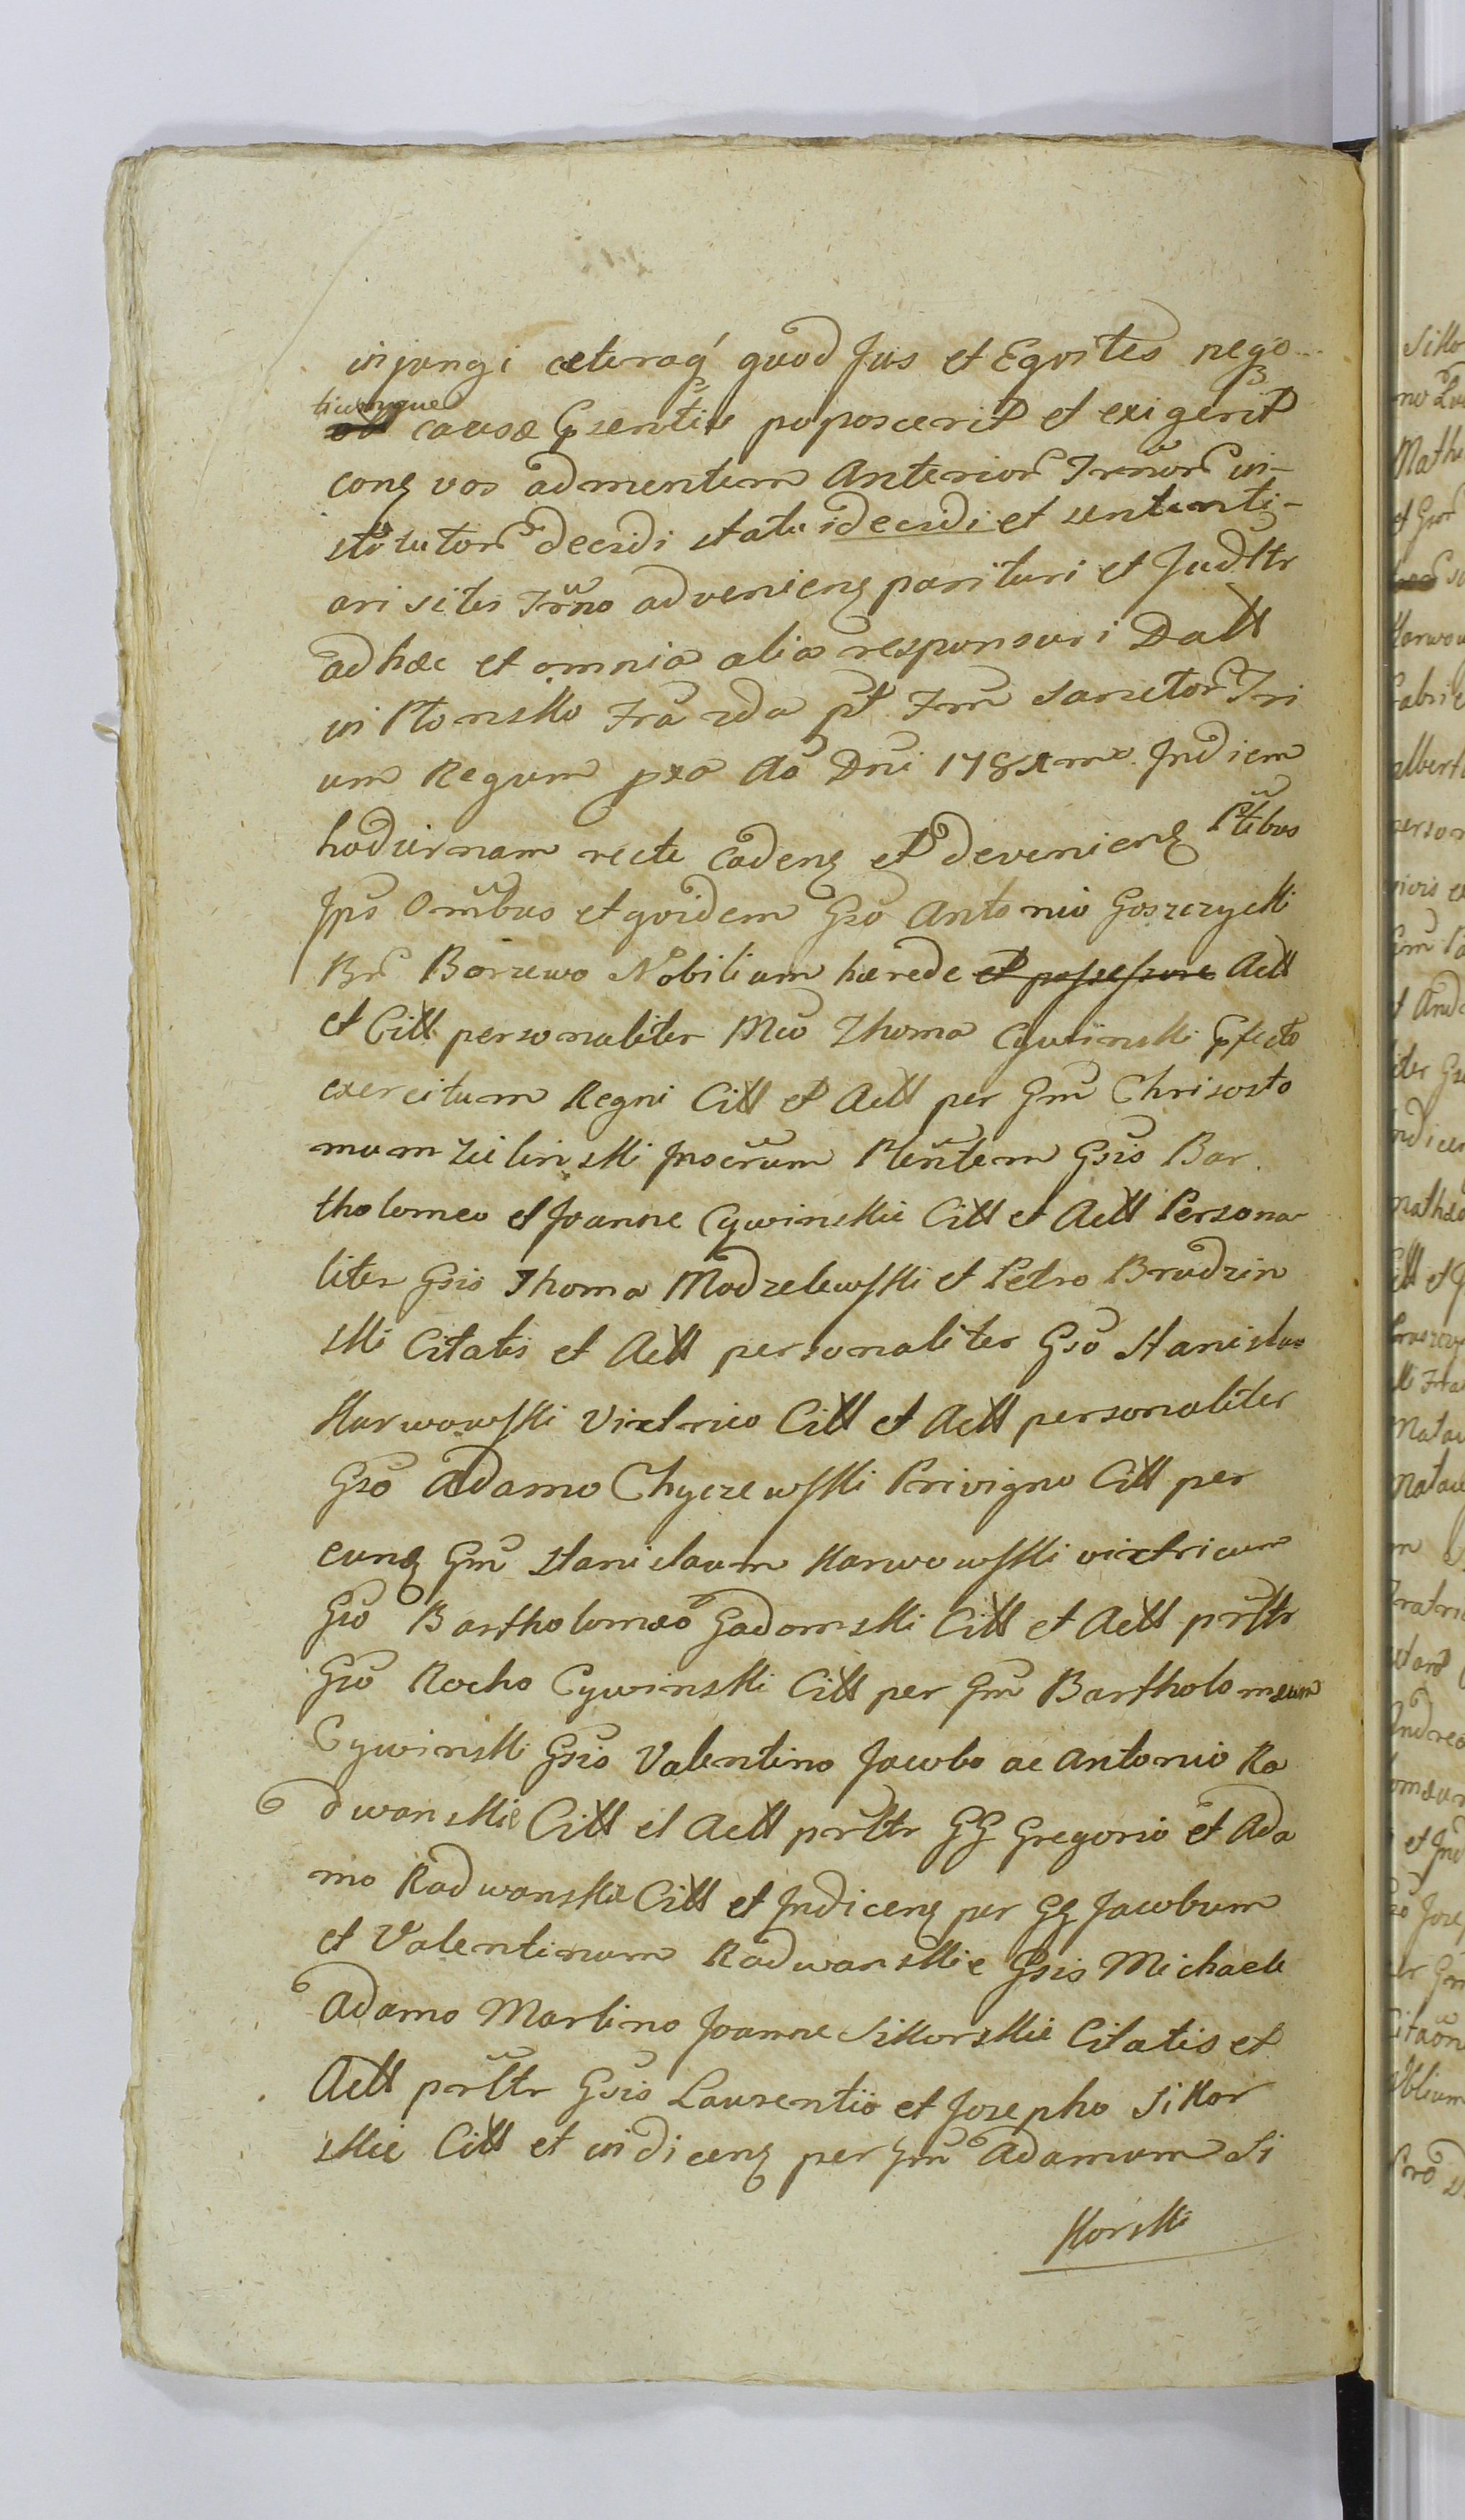 injungi cæteraq́ quod Jus et Eqvitas nego-
tiumque causæ Gsentis poposcerit et exigerit
conq vos ad mentem Anterior Trnor in-
stõ tutor decidi statui decidi et sententi-
ari sitis Trño advenienq parituri et Judltr
ad hæc et omnia alia responsuri Datt
in Płonsko Fra 2da pt Fm Sanctor Tri
um Regum pxa Ao Dni 178 Indiem
hodiernam recte Cadenq et devenienq Ptibus
Jps Omibus et qvidem Gso Antonio Goszczycki
Br Borzewo Nobilium hærede et possessore Actt
et Citt personaliter Mco Thoma Cywinski Gfecto
exercitum Regni Citt et Actt per Gm Chrisosto
mum Zielinski Jnscrum Plentem Gsis Bar
tholomeo et Joanne Cywinskie Citt et Actt Persona-
liter Gsis Thoma Modzelewski et Petro Brudzin
ski Citatis et Actt personaliter Gso Stanislao
Karwowski Vixtrico Citt et Actt personaliter
Gso Adamo Chyczewski Privigno Citt per
eunq Gm Stanislaum Karwowski vixtricum
Gso Bartholomæo Gadomski Citt et Actt prltr
Gso Rocho Cywinski Citt per Gm Bartholomæum
Cywinski Gsis Valentino Jacobo ac Antonio Ra
dwanskie Citt et Actt prltr GG Gregorio et Ada
mo Radwanskie Citt et Indicenq per GG Jacobum
et Valentinum Radwanskie Gsis Michaele
Adamo Martino Joanne Sikorskie Citatis et
Actt prltr Gsis Laurentio et Josepho Sikor
skie Citt et indicenq per Gm Adamum Si
korski